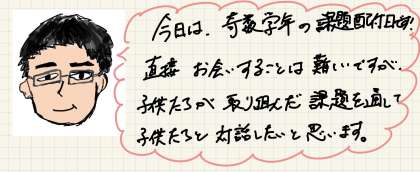 今日は、奇数学年の課題配付日です。
直接お会いすることは難しいですが、
子供たちが取り組んだ課題を通して
子供たちと対話したいと思います。